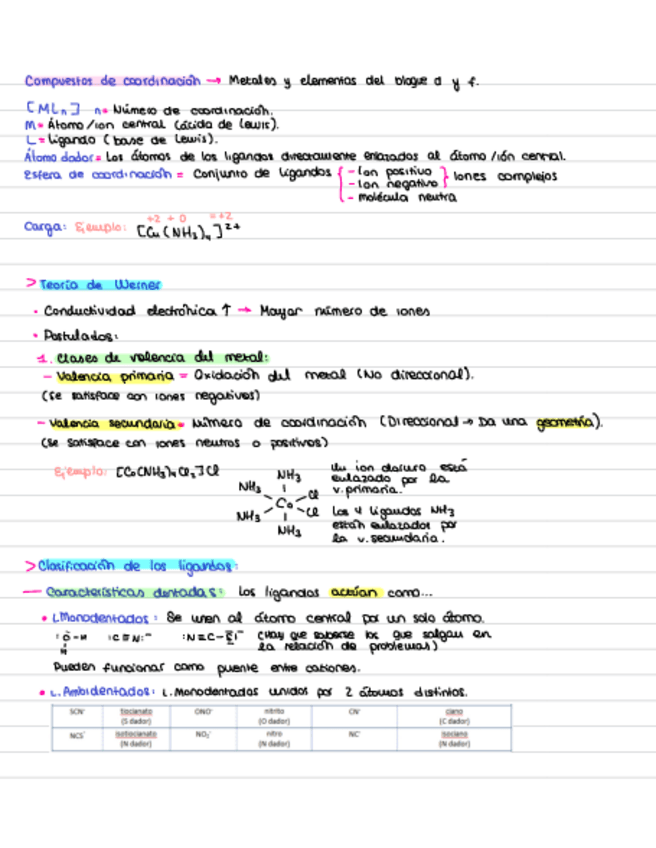 Compuestos de coordinación → Metales y elementos del bloque d y f.
[MLn] n = Número de coordinación.
M = Átomo/ion central (ácido de Lewis).
L = Ligando (base de Lewis).
Átomo dador = Los átomos de los ligandos directamente enlazados al átomo/ión central.
Esfera de coordinación = Conjunto de Ligandos { - Ion positivo } Iones complejos
- Ion negativo
- molécula neutra
+2 + 0 = +2
Carga: Ejemplo: [Cu(NH3)4]2+
> Teoría de Werner
• Conductividad electrónica ↑ → Mayor número de iones
• Postulados:
1. Clases de valencia del metal:
- Valencia primaria = Oxidación del metal (No direccional).
(Se satisface con iones negativos)
- Valencia secundaria = Número de coordinación (Direccional → Da una geometría).
(Se satisface con iones neutros o positivos)
Ejemplo: [Co(NH3)4Cl2]Cl
NH3
NH3 Cl
Co
NH3 Cl
NH3
Un ion cloruro está
enlazado por la
v. primaria.
Los 4 ligandos NH3
están enlazados por
la v. secundaria.
> Clasificación de los ligandos:
— Características dentadas: Los ligandos actúan como...
• L. Monodentados: Se unen al átomo central por un solo átomo.
:Ö-H :C≡N:⁻ :N≡C-S̈|⁻ (Hay que saberse los que salgan en
H la relación de problemas)
Pueden funcionar como puente entre cationes.
• L. Ambidentados: L. Monodentados unidos por 2 átomos distintos.
SCN⁻ tiocianato (S dador) ONO⁻ nitrito (O dador) CN⁻ ciano (C dador)
NCS⁻ isotiocianato (N dador) NO2⁻ nitro (N dador) NC⁻ isociano (N dador)